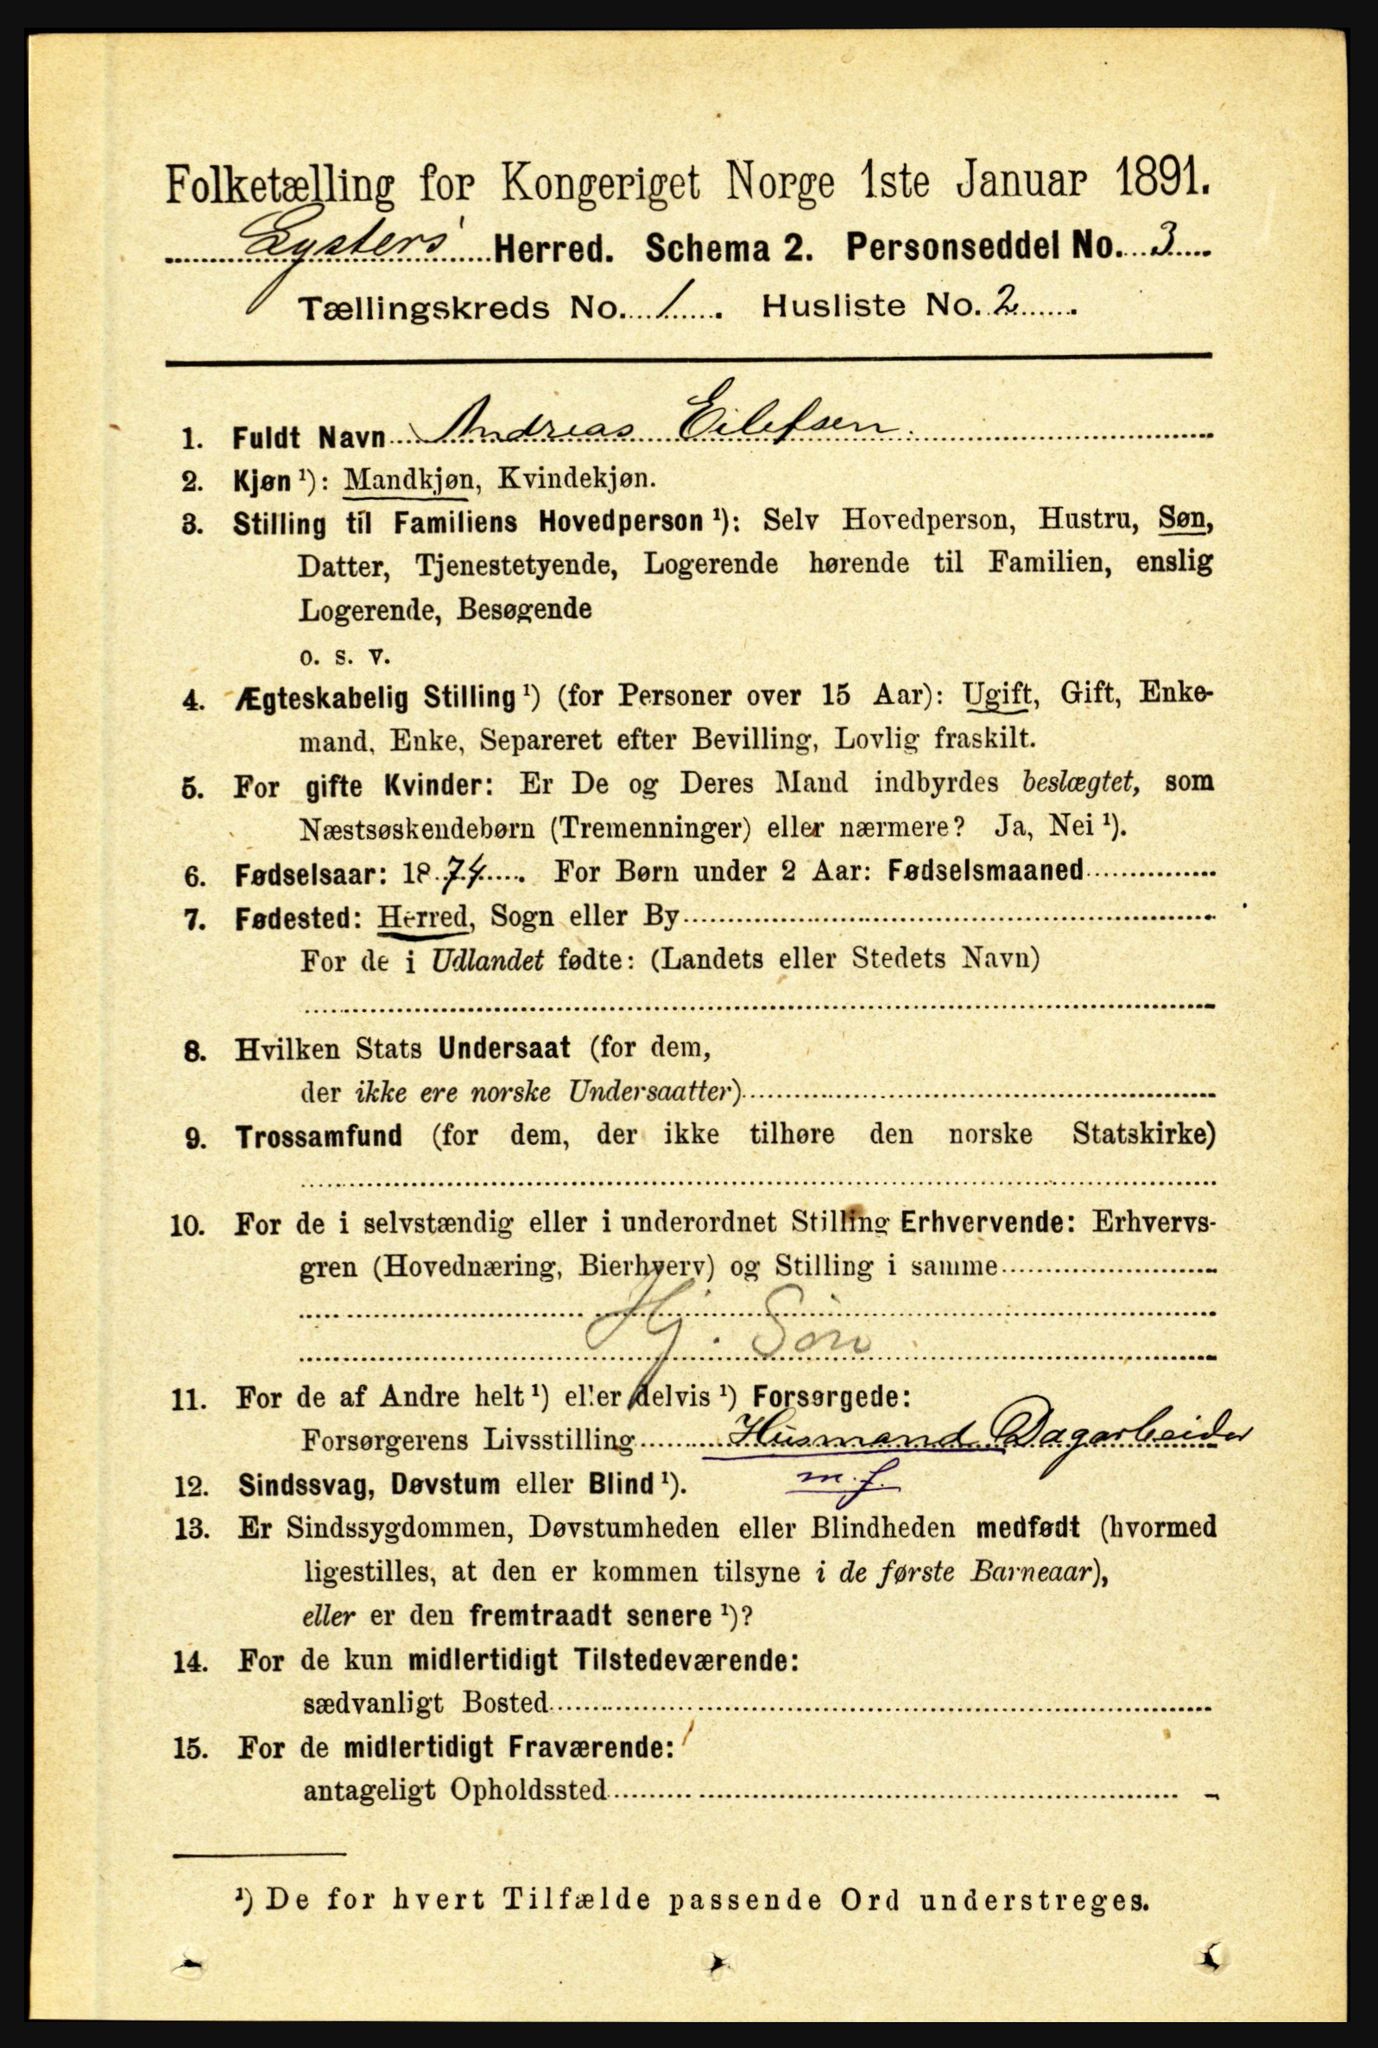 Folketælling for Kongeriget Norge 1ste Januar 1891.
Lysters Herred. Schema 2. Personseddel No. 3
Tællingskreds No. 1. Husliste No. 2.
1. Fuldt Navn Andreas Eilefsen.
2. Kjøn ¹): Mandkjøn, Kvindekjøn.
3. Stilling til Familiens Hovedperson ¹): Selv Hovedperson, Hustru, Søn,
Datter, Tjenestetyende, Logerende hørende til Familien, enslig
Logerende, Besøgende
o. s. v.
4. Ægteskabelig Stilling ¹) (for Personer over 15 Aar): Ugift, Gift, Enke-
mand, Enke, Separeret efter Bevilling, Lovlig fraskilt.
5. For gifte Kvinder: Er De og Deres Mand indbyrdes beslægtet, som
Næstsøskendebørn (Tremenninger) eller nærmere? Ja, Nei ¹).
6. Fødselsaar: 1874. For Børn under 2 Aar: Fødselsmaaned
7. Fødested: Herred, Sogn eller By
For de i Udlandet fødte: (Landets eller Stedets Navn)
8. Hvilken Stats Undersaat (for dem,
der ikke ere norske Undersaatter)
9. Trossamfund (for dem, der ikke tilhøre den norske Statskirke)
10. For de i selvstændig eller i underordnet Stilling Erhvervende: Erhvervs-
gren (Hovednæring, Bierhverv) og Stilling i samme
Hj. Søn
11. For de af Andre helt ¹) eller delvis ¹) Forsørgede:
Forsørgerens Livsstilling Husmand Dagarbeider
12. Sindssvag, Døvstum eller Blind ¹). m. j.
13. Er Sindssygdommen, Døvstumheden eller Blindheden medfødt (hvormed
ligestilles, at den er kommen tilsyne i de første Barneaar),
eller er den fremtraadt senere ¹)?
14. For de kun midlertidigt Tilstedeværende:
sædvanligt Bosted
15. For de midlertidigt Fraværende:
antageligt Opholdssted
¹) De for hvert Tilfælde passende Ord understreges.